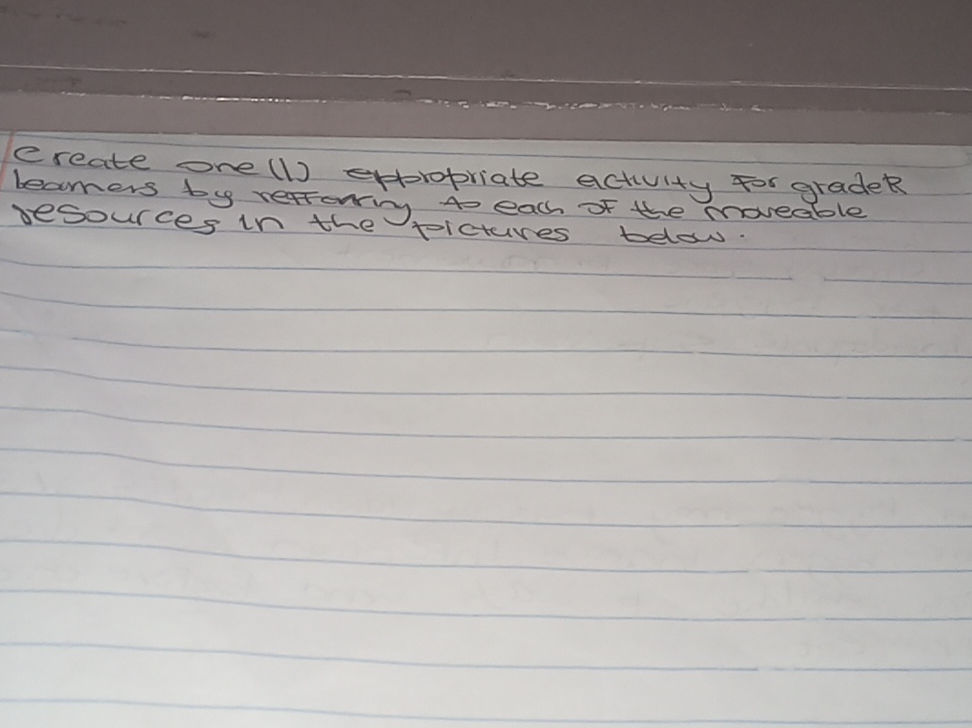 Create one (1) appropriate activity For gradeR
learners by reffering to each of the moveable
resources in the pictures below.